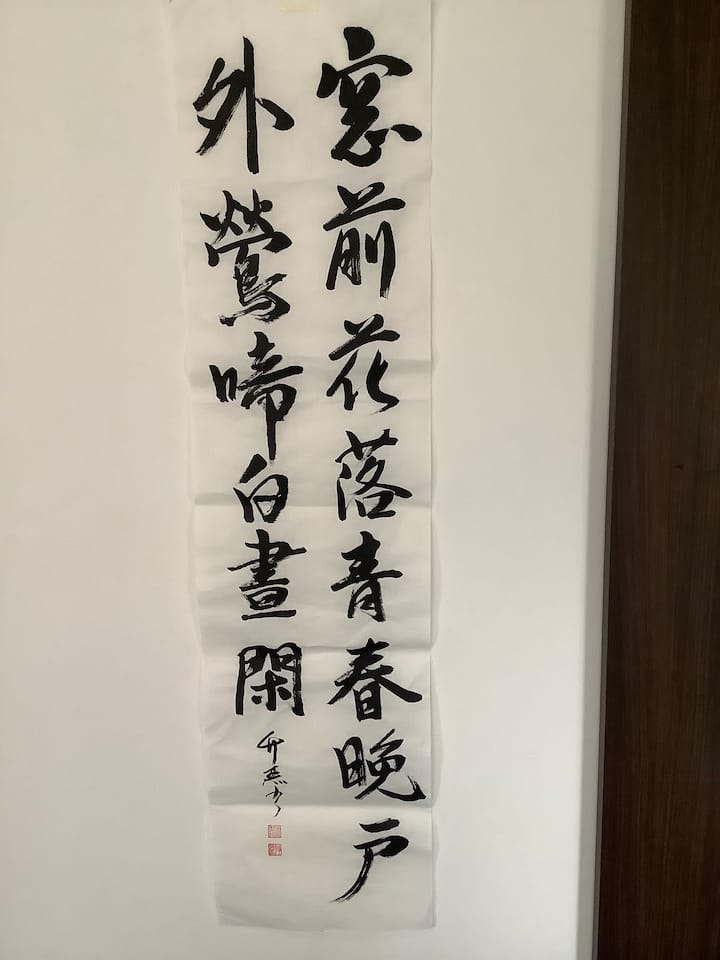 窓前花落青春晩戸
外鶯啼白晝閑